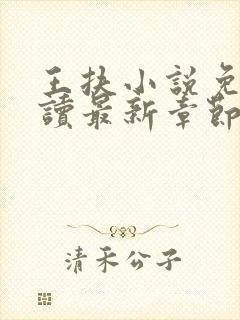 王扶小說免
讀最新章節
清禾公子